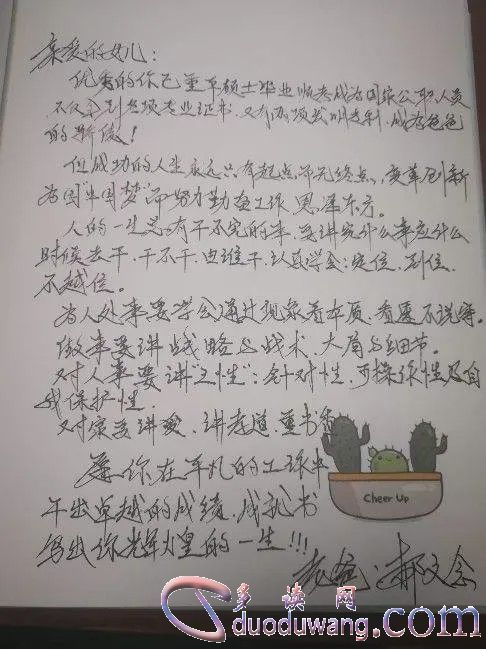 亲爱的女儿：
优秀的你已重军硕士毕业顺考成为国家公职人员
不仅拿到各项专业证书，又有两项发明专利，成为爸爸
的骄傲！
但成功的人生永远只有起点而无终点，变革创新
为国"中国梦"而努力勤奋工作
人的一生总有干不完的事，要讲究什么事应什么
时候去干，干不干，由谁干，认真学会：定位、到位、
不越位。
为人处事要学会通过现象看本质，看透不说透。
做事要讲战略与战术，大局与细节。
对人事要讲"三性"：针对性、可操作性及自
我保护性。
对家要讲爱、讲孝道、
愿你在平凡的工作中
干出卓越的成绩，成就书
写出你辉煌的一生!!!
老爸：郝文会
Cheer Up
多读网
duoduwang.com